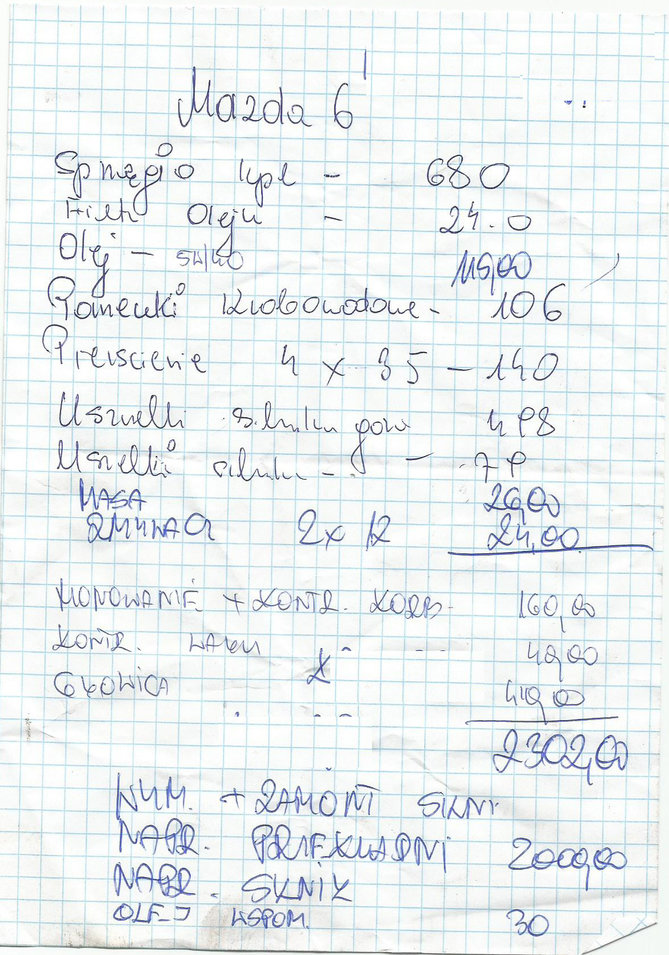 Mazda 6
Sprzęgło kpl - 680
Filtr Oleju - 24.0
Olej - 5W/40 115,00
Panewki Korbowodowe - 106
Pierscienie 4 x 35 - 140
Uszczelki silniku gów 498
Uszczelki silniku - - 79
MASA 20,00
ZMYWACZ 2 x 12 24,00
HONOWANIE + KONTR. KORB - 160,00
KONTR. WAŁU 40,00
GŁOWICA
2302,00
WYM. + ZAMONT SILNI
NAPR. PRZEKŁADNI 2000,00
NAPR. SILNIK
OLEJ WSPOM. 30